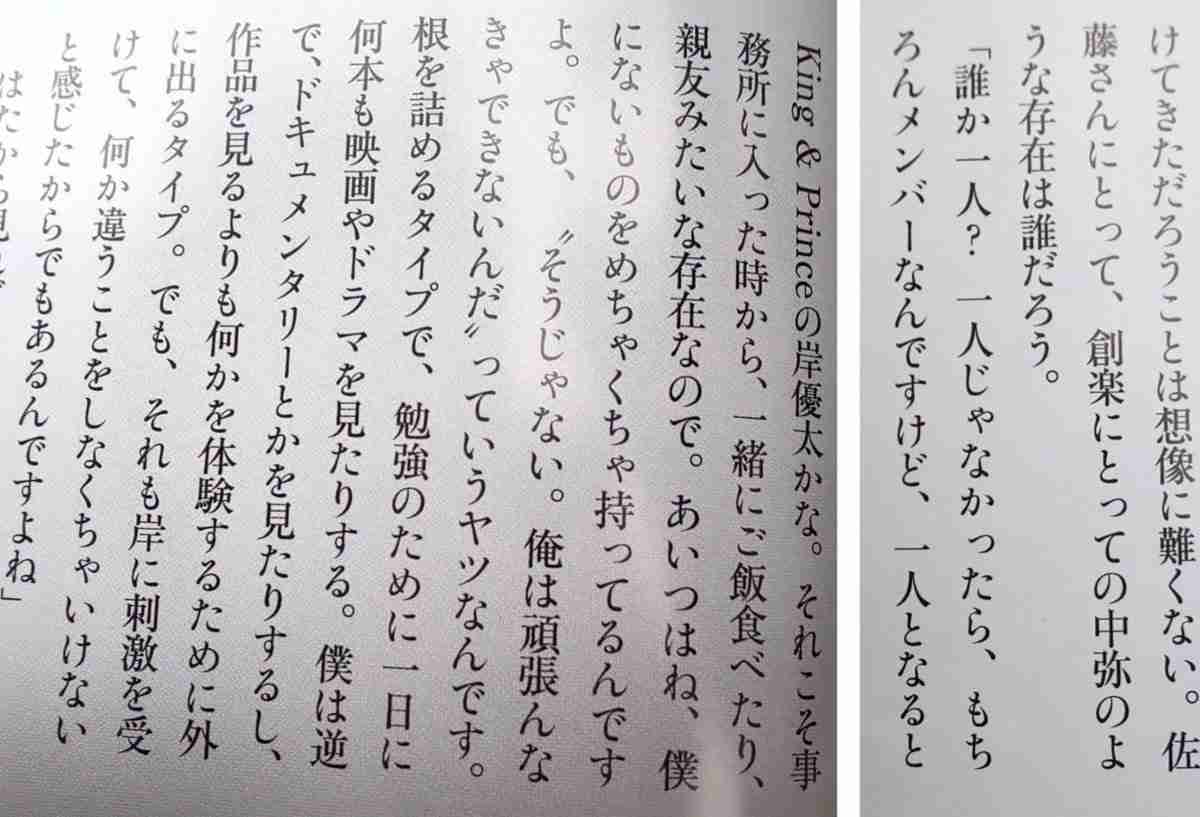 けてきただろうことは想像に難くない。佐
藤さんにとって、創楽にとっての中弥のよ
うな存在は誰だろう。
「誰か一人？　一人じゃなかったら、もち
ろんメンバーなんですけど、一人となると
King & Princeの岸優太かな。それこそ事
務所に入った時から、一緒にご飯食べたり、
親友みたいな存在なので。あいつはね、僕
にないものをめちゃくちゃ持ってるんです
よ。でも、〝そうじゃない。俺は頑張んな
きゃできないんだ〟っていうヤツなんです。
根を詰めるタイプで、勉強のために一日に
何本も映画やドラマを見たりする。僕は逆
で、ドキュメンタリーとかを見たりするし、
作品を見るよりも何かを体験するために外
に出るタイプ。でも、それも岸に刺激を受
けて、何か違うことをしなくちゃいけない
と感じたからでもあるんですよね」